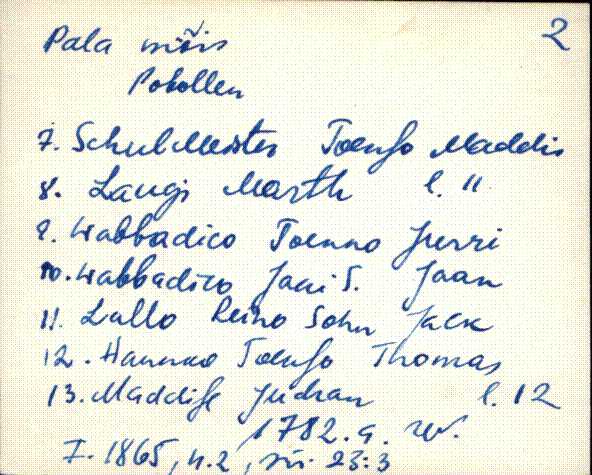 2
Pala mõis
Pokollen
7. Schulmeister Toenso Maddis
8. Laugi Marth l. 11
9. Wabbadico Toenno Jurri
10. Wabbadico Jaani S. Jaan
11. Lallo Reino Sohn Jack
12. Hannuo Toenso Thomas
13. Maddise Jurran l. 12
1782. a. rev.
F. 1865, n. 2, sü. 23:3